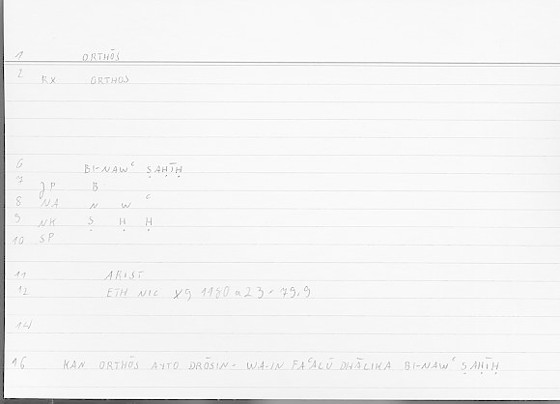 1 ORTHŌS
2 RX ORTHOS
6 BI-NAWʿ ṢAḤĪḤ
7 JP B
8 NA N W ʿ
9 NK Ṣ Ḥ Ḥ
10 SP
11 ARIST
12 ETH NIC
14
16 KAN ORTHŌS AYTO DRŌSIN - WA-IN FAʿALŪ DHĀLIKA BI-NAWʿ ṢAḤĪḤ